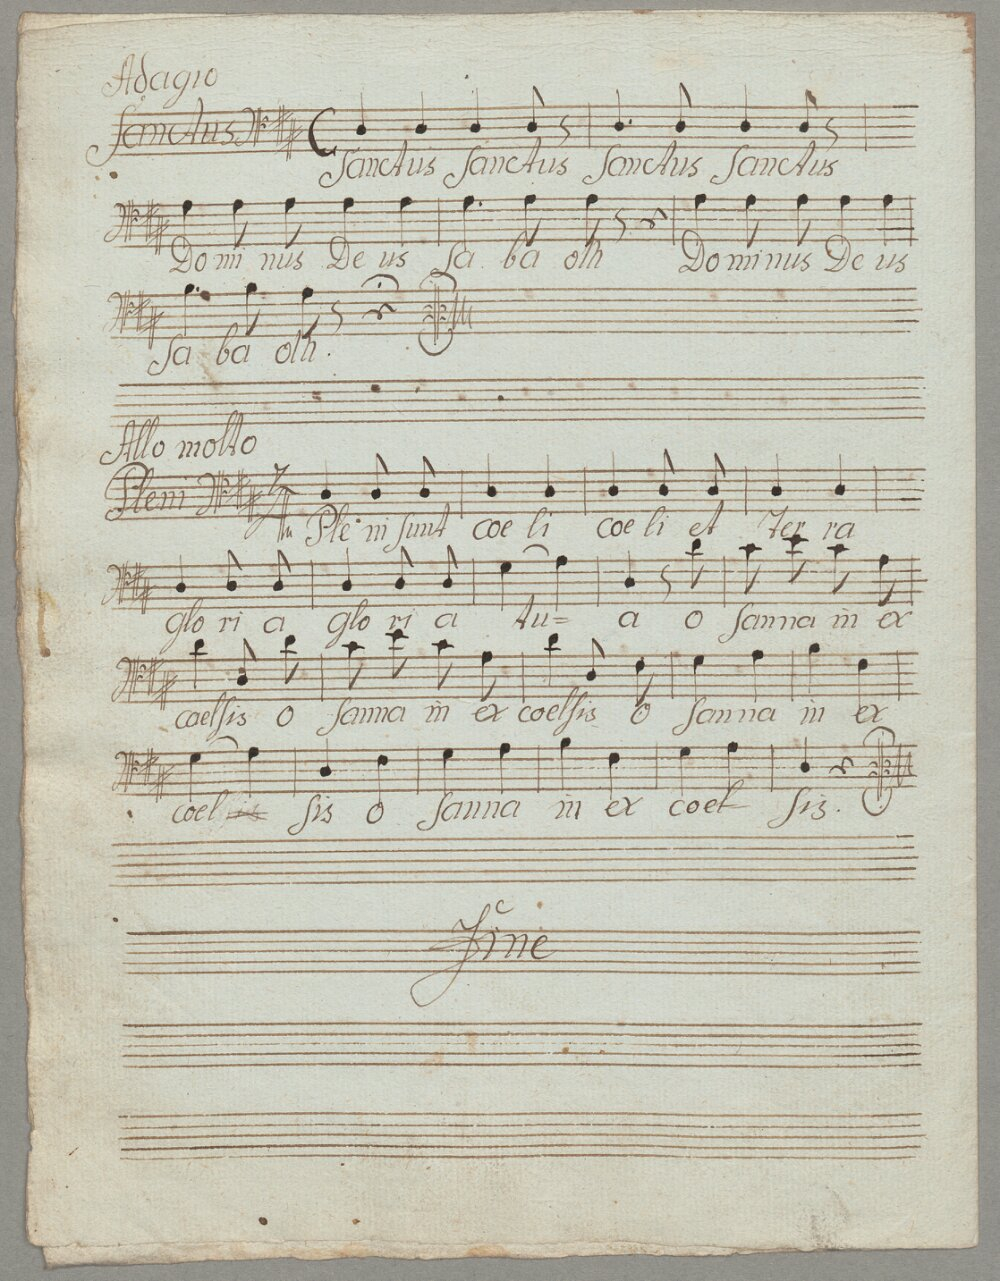 Adagio
Sanctus.
Sanctus Sanctus Sanctus Sanctus
Do mi nus De us Sa ba oth Do mi nus De us
Sa ba oth.
Allo molto
Pleni
Ple ni sunt coe li coe li et ter ra
glo ri a glo ri a tu= a o sanna in ex
caelsis o sanna in ex coelsis o sanna in ex
coel sis o sanna in ex coel sis.
Fine